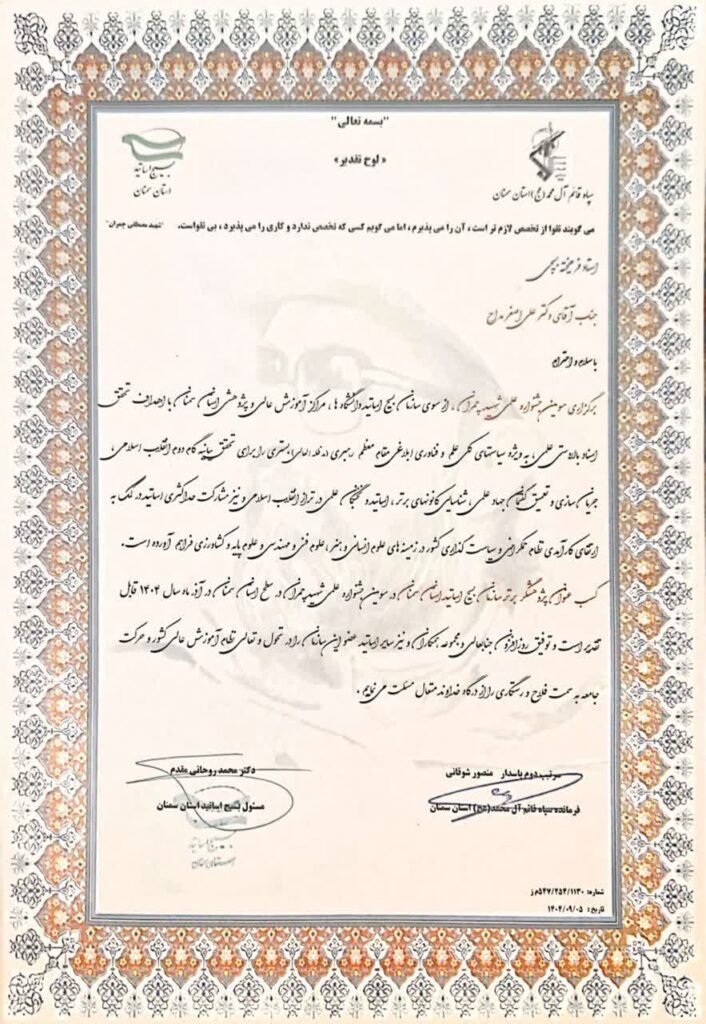 "بسمه تعالی"
« لوح تقدیر»
بسیج اساتید
استان سمنان
سپاه قائم آل محمد (عج) استان سمنان
می گویند تقوا از تخصص لازم تر است، آن را می پذیرم، اما می گویم کسی که تخصص ندارد و کاری را می پذیرد، بی تقواست. "شهید مصطفی چمران"
استاد فرهیخته بسیجی
جناب آقای دکتر علی اصغر مداح
با سلام و احترام
برگزاری سومین جشنواره علمی شهید چمران، از سوی سازمان بسیج اساتید دانشگاه ها، مراکز آموزش عالی و پژوهشی استان سمنان با اهداف تحقق
اسناد بالادستی علمی، به ویژه سیاستهای کلی علم و فناوری ابلاغی مقام معظم رهبری (مدظله العالی) بستری را برای تحقق بیانیه گام دوم انقلاب اسلامی،
جریان سازی و تعمیق گفتمان جهاد علمی، شناسایی کانونهای برتر، اساتید و نخبگان علمی در تراز انقلاب اسلامی و نیز مشارکت حداکثری اساتید در کمک به
ارتقای کارآمدی نظام حکمرانی و سیاست گذاری کشور در زمینه های علوم انسانی و هنر، علوم فنی و مهندسی و علوم پایه و کشاورزی فراهم آورده است.
کسب عنوان پژوهشگر برتر سازمان بسیج اساتید استان سمنان در سومین جشنواره علمی شهید چمران در سطح استان سمنان در آذر ماه سال ۱۴۰۴ قابل
تقدیر است و توفیق روزافزون جنابعالی و مجموعه همکاران و نیز سایر اساتید عضو این سازمان را در تحول و تعالی نظام آموزش عالی کشور و حرکت
جامعه به سمت فلاح و رستگاری را از درگاه خداوند متعال مسئلت می نمایم.
سرتیپ دوم پاسدار منصور شوقانی
فرمانده سپاه قائم آل محمد(عج) استان سمنان
دکتر محمد روحانی مقدم
مسئول بسیج اساتید استان سمنان
بسیج اساتید
شماره: ۵۴۷/۲۵۴/۱۱۳۰م ز
تاریخ: ۱۴۰۴/۰۹/۰۵